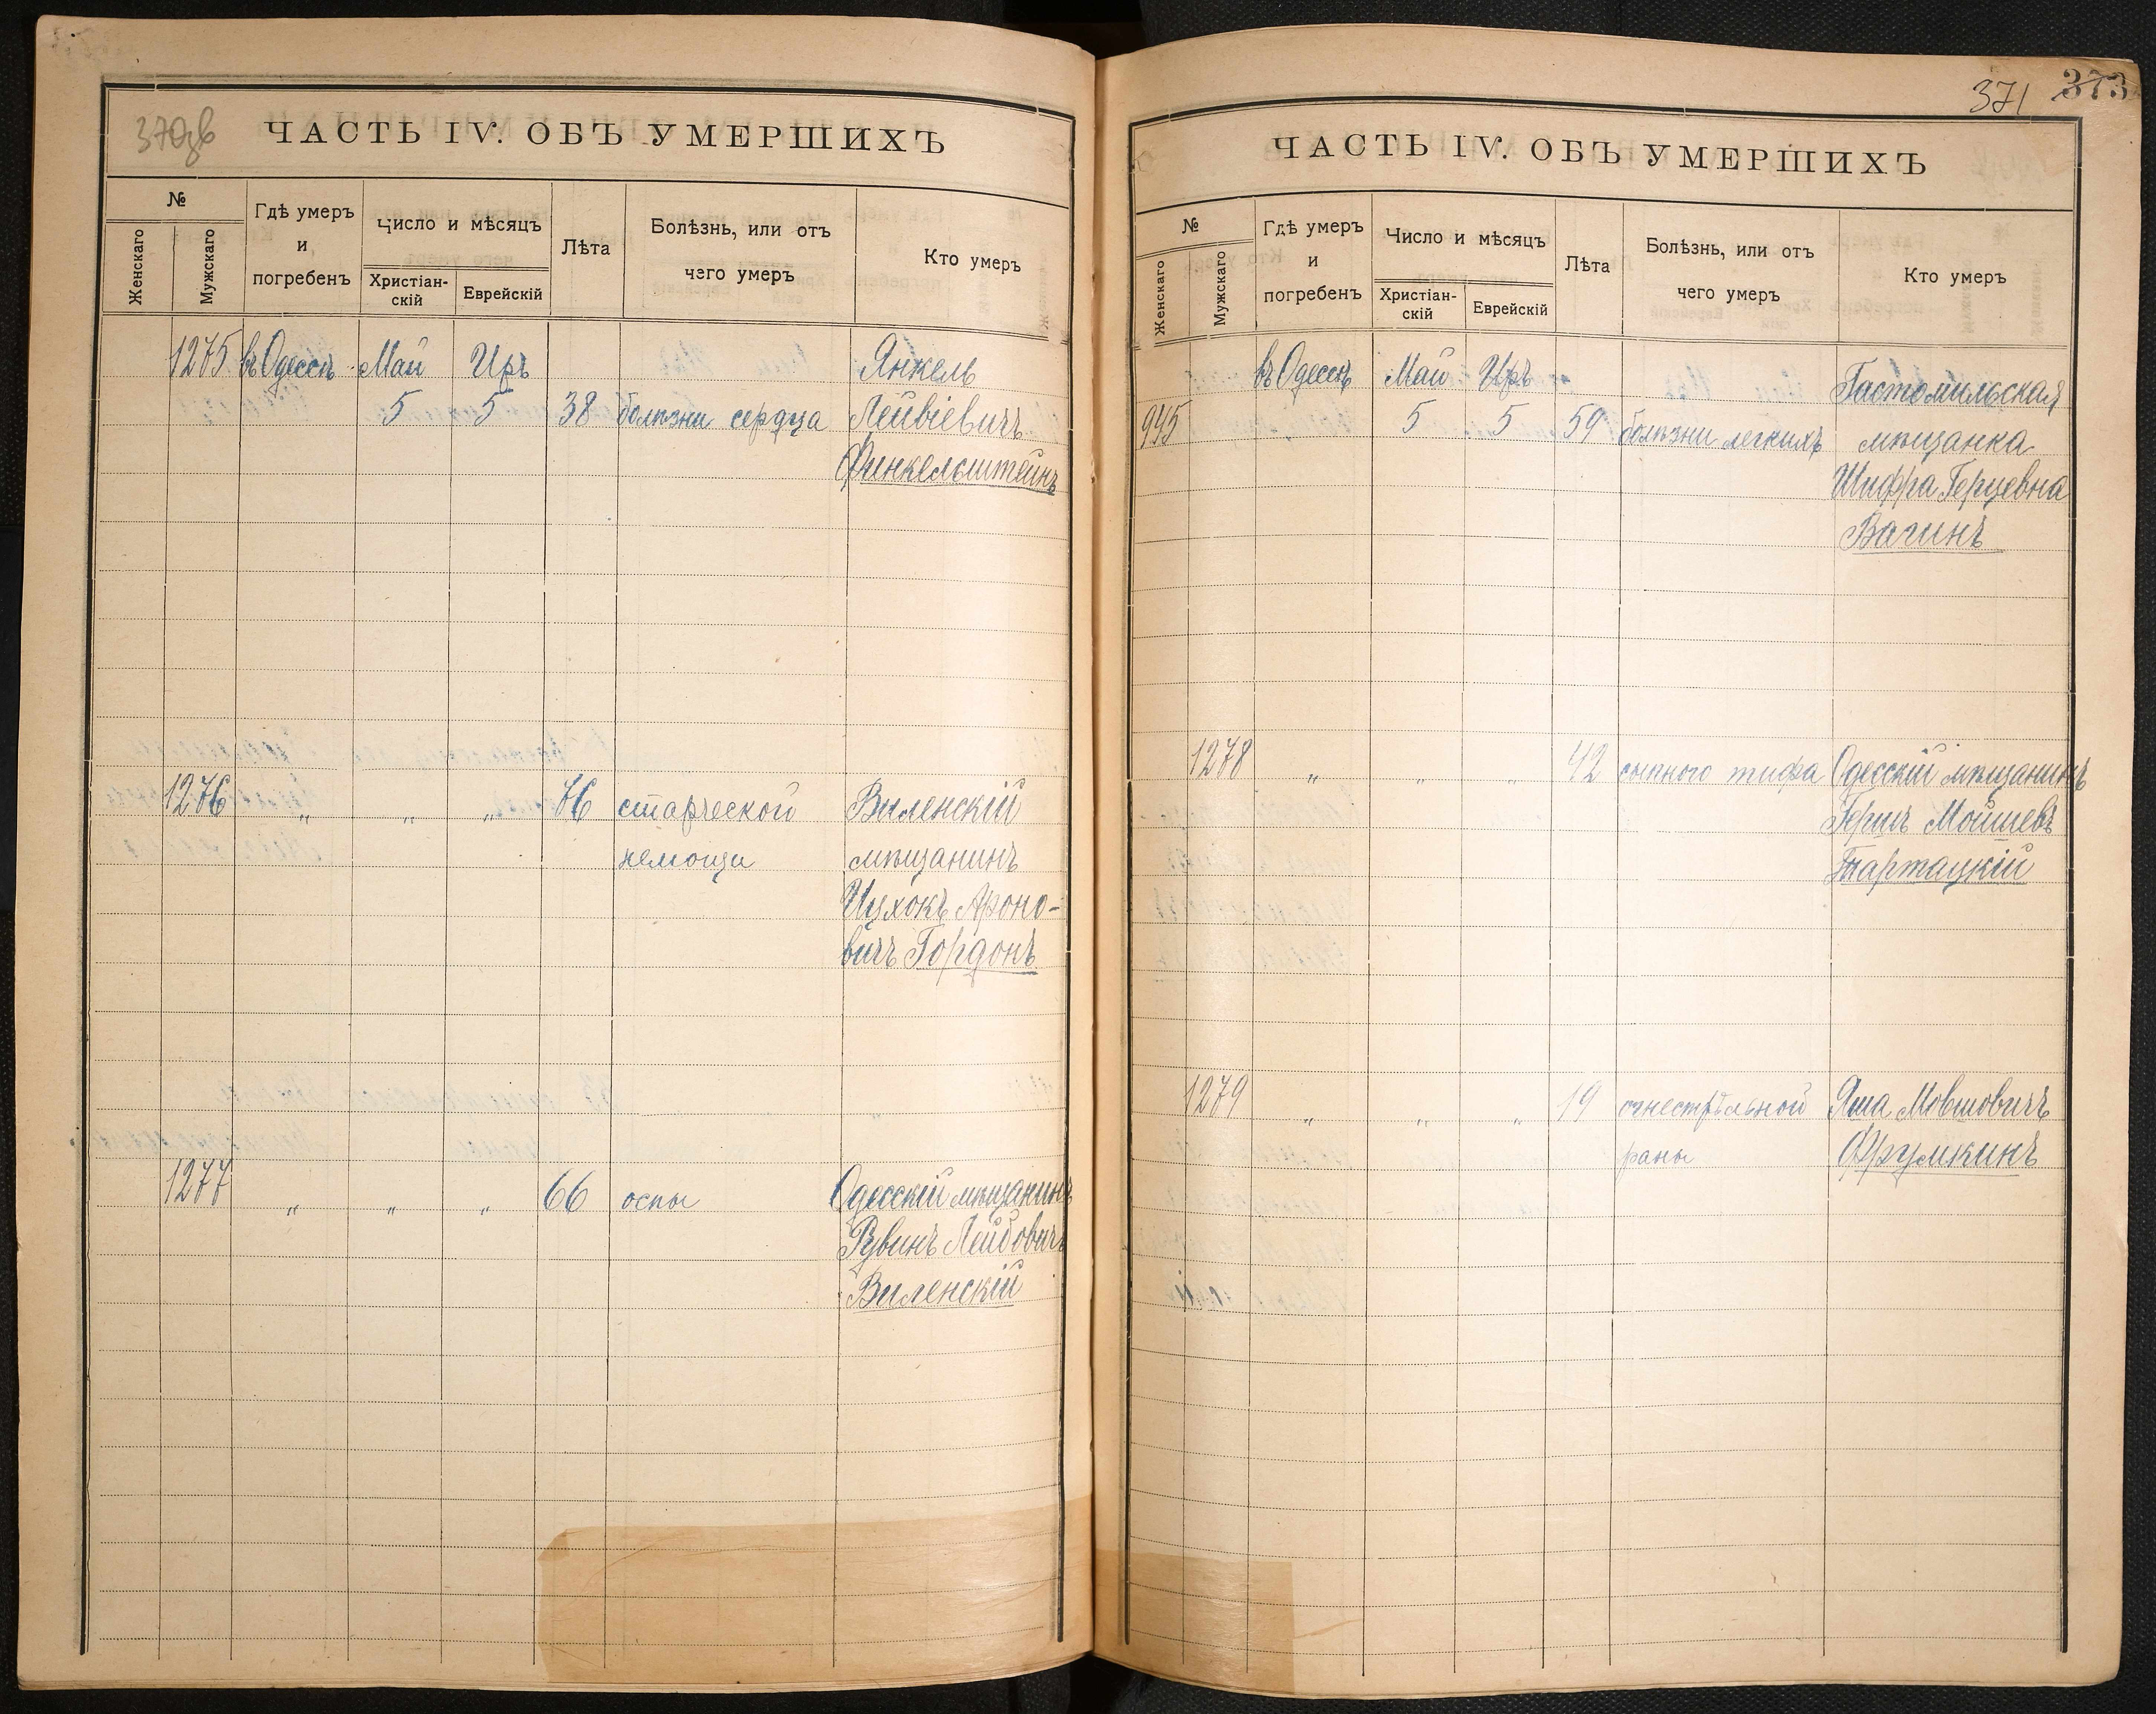 370зв
ЧАСТЬ IV. ОБЪ УМЕРШИХЪ
№
Женскаго
Мужскаго
Гдѣ умеръ
и
погребенъ
Число и мѣсяцъ
Христіан-
скій
Еврейскій
Лѣта
Болѣзнь, или отъ
чего умеръ
Кто умеръ
1275 въ Одессѣ Май Иръ Янкель
5 5 38 болѣзни сердца Лейвіевичъ
Финкельштейнъ
1276 „ „ „ 76 старческой Виленскій
немощи мѣщанинъ
Ицхокъ Ароно-
вичъ Гордонъ
1277 „ „ „ 66 оспы Одесскій мѣщанинъ
Рувинъ Лейбовичъ
Виленскій
371 373
ЧАСТЬ IV. ОБЪ УМЕРШИХЪ
№
Женскаго
Мужскаго
Гдѣ умеръ
и
погребенъ
Число и мѣсяцъ
Христіан-
скій
Еврейскій
Лѣта
Болѣзнь, или отъ
чего умеръ
Кто умеръ
въ Одессѣ Май Иръ Гостомильская
945 „ 5 5 59 болѣзни легкихъ мѣщанка
Шифра Герцевна
Вагинъ
1278 „ „ „ 42 сыпного тифа Одесскій мѣщанинъ
Герцъ Мошиевъ
Тартацкій
1279 „ „ „ 19 огнестрѣльной Яша Мовшовичъ
раны Фрумкинъ